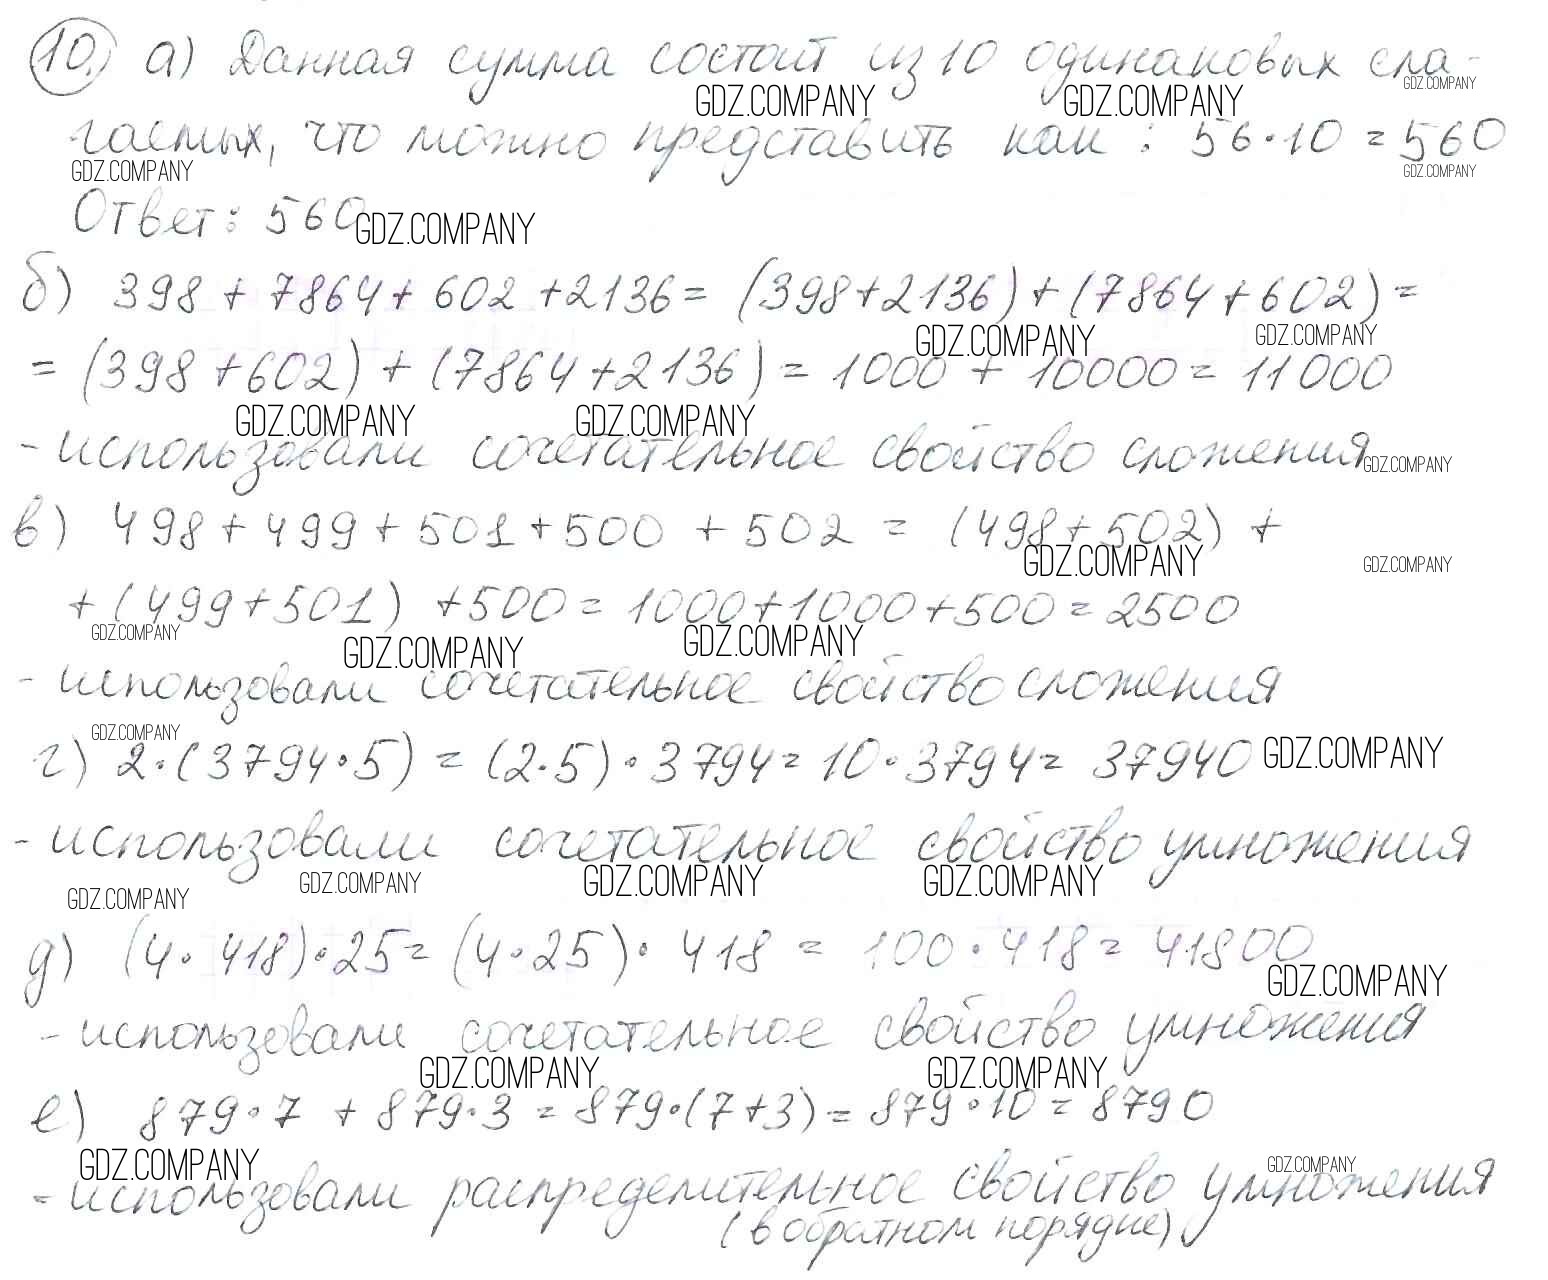 10. а) Данная сумма состоит из 10 одинаковых сла-
GDZ.COMPANY GDZ.COMPANY GDZ.COMPANY
гаемых, что можно представить как : 56·10 = 560
GDZ.COMPANY GDZ.COMPANY
Ответ: 560
GDZ.COMPANY
б) 398 + 7864 + 602 + 2136 = (398+2136) + (7864+602) =
GDZ.COMPANY GDZ.COMPANY
= (398 + 602) + (7864 + 2136) = 1000 + 10000 = 11000
GDZ.COMPANY GDZ.COMPANY
- использовали сочетательное свойство сложения
GDZ.COMPANY
в) 498 + 499 + 501 + 500 + 502 = (498 + 502) +
GDZ.COMPANY GDZ.COMPANY
+ (499 + 501) + 500 = 1000 + 1000 + 500 = 2500
GDZ.COMPANY GDZ.COMPANY GDZ.COMPANY
- использовали сочетательное свойство сложения
GDZ.COMPANY
г) 2·(3794·5) = (2·5)·3794 = 10·3794 = 37940
GDZ.COMPANY
- использовали сочетательное свойство умножения
GDZ.COMPANY GDZ.COMPANY GDZ.COMPANY GDZ.COMPANY
д) (4·418)·25 = (4·25)·418 = 100·418 = 41800
GDZ.COMPANY
- использовали сочетательное свойство умножения
GDZ.COMPANY GDZ.COMPANY
е) 879·7 + 879·3 = 879·(7+3) = 879·10 = 8790
GDZ.COMPANY GDZ.COMPANY
- использовали распределительное свойство умножения
(в обратном порядке)